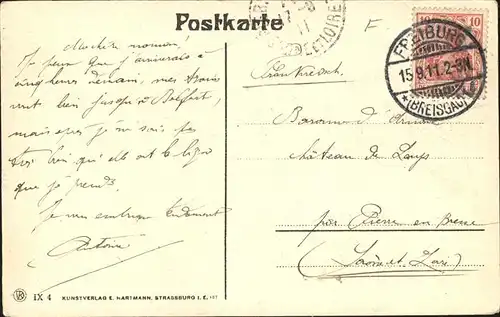 Postkarte
17-9
11
ET LOIRE
F
10 10
FREIBURG
15.9.11.2-3N.
*(BREISGAU)
Ma chère maman,
Je pense que j'arriverai à
cinq heures demain, mes
vont bien jusqu'à Belfort,
mais après je ne sais pas
très bien qu'elle est la ligne
que je prends.
Je vous embrasse tendrement
Antoine
Frankreich
Baronne d'
Château de Layé
par Pierre en Bresse
(Saône et Loire)
IX 4 KUNSTVERLAG E. HARTMANN, STRASSBURG I. E.